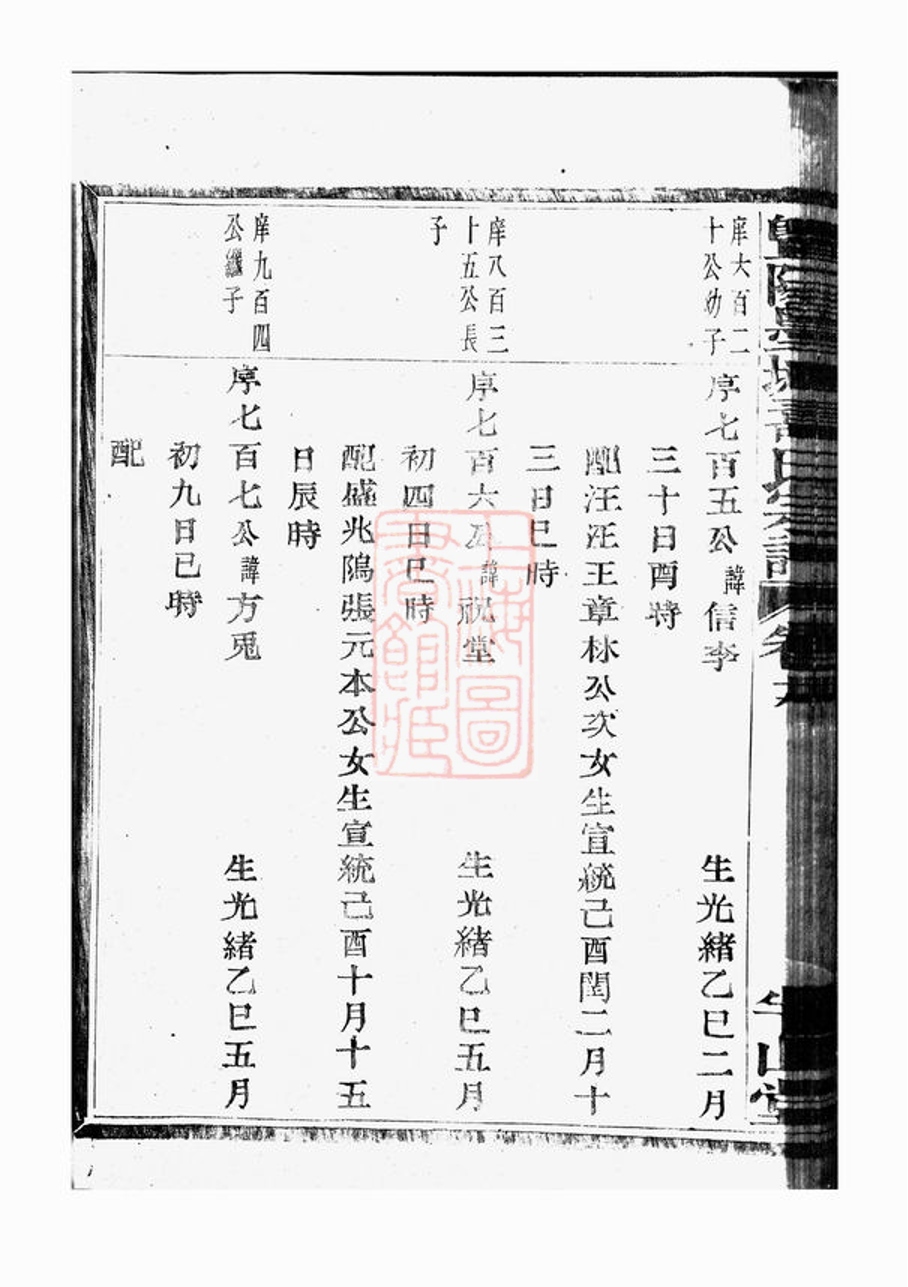 庠大百二
十公幼子
序七百五公諱信李
生光緒乙巳二月
三十日酉時
配汪汪王章林公次女生宣統己酉閏二月十
三日巳時
庠八百三
十五公長
子
序七百六公諱祝堂
生光緒乙巳五月
初四日巳時
配盛兆隖張元本公女生宣統己酉十月十五
日辰時
庠九百四
公繼子
序七百七公諱方兎
生光緒乙巳五月
初九日巳時
配
上海圖
書館藏